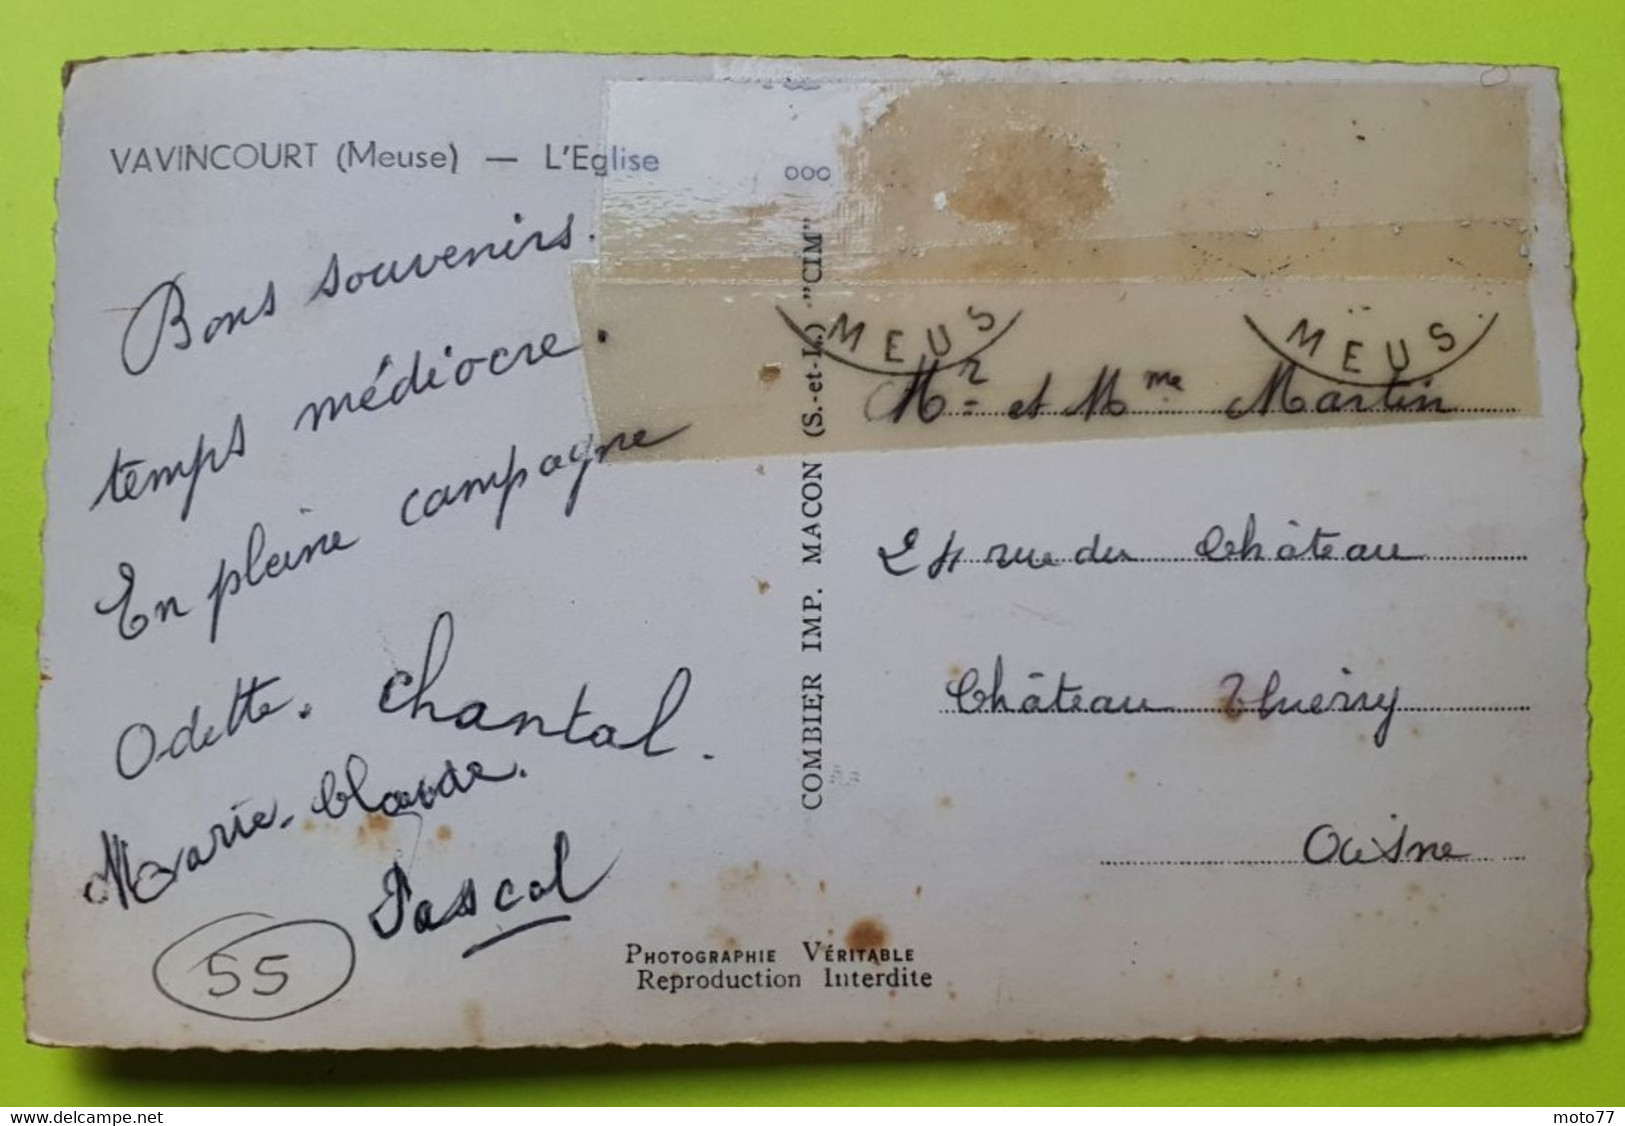 VAVINCOURT (Meuse) — L'Eglise
Bons souvenirs.
temps médiocre.
En pleine campagne
Odette. Chantal.
Marie-Claude.
Pascal
55
ooo
COMBIER IMP. MACON (S.-et-L.) "CIM"
MEUS
MEUS
Mr et Mme Martin
24 rue du Château
Château Thierry
Aisne
PHOTOGRAPHIE VÉRITABLE
Reproduction Interdite
www.delcampe.net
moto77